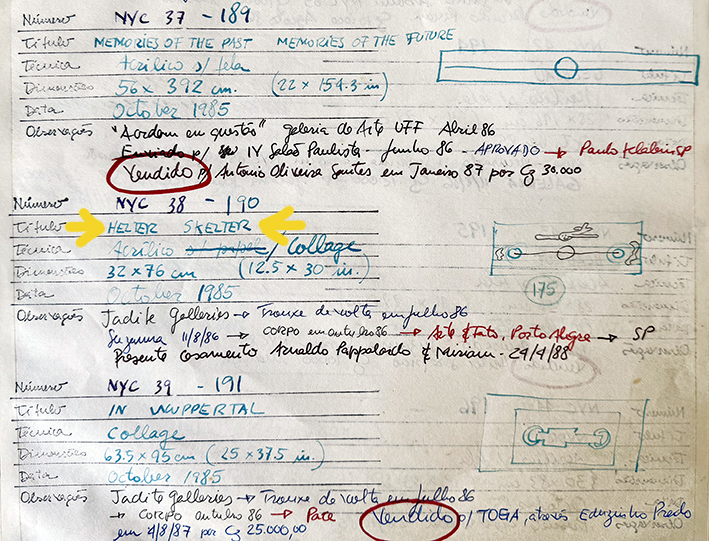 Número NYC 37 - 189
Título MEMORIES OF THE PAST MEMORIES OF THE FUTURE
Técnica Acrílico s/ tela
Dimensões 56 x 392 cm. (22 x 154.3 in)
Data October 1985
Observações "A ordem em questão" galeria de Arte UFF Abril 86
Enviado p/ IV Salão Paulista - Junho 86 - APROVADO → Paulo Klabin SP
Vendido p/ Antonio Oliveira Santos em Janeiro 87 por Cz 30.000
Número NYC 38 - 190
Título HELTER SKELTER
Técnica Acrílico s/ papel / Collage
Dimensões 32 x 76 cm (12.5 x 30 in.)
Data October 1985
175
Observações Jadite Galleries → Trouxe de volta em julho 86
Suzanna 11/8/86 → CORPO em outubro 86 → Arte & Fato, Porto Alegre → SP
Presente Casamento Arnaldo Pappalardo & Miriam - 24/4/88
Número NYC 39 - 191
Título IN WUPPERTAL
Técnica Collage
Dimensões 63.5 x 95 cm (25 x 37.5 in.)
Data October 1985
Observações Jadite Galleries → Trouxe de volta em julho 86
→ CORPO outubro 86 → Vendido p/ TOGA, através Eduzinho Prado
em 4/8/87 por Cz 25.000,00